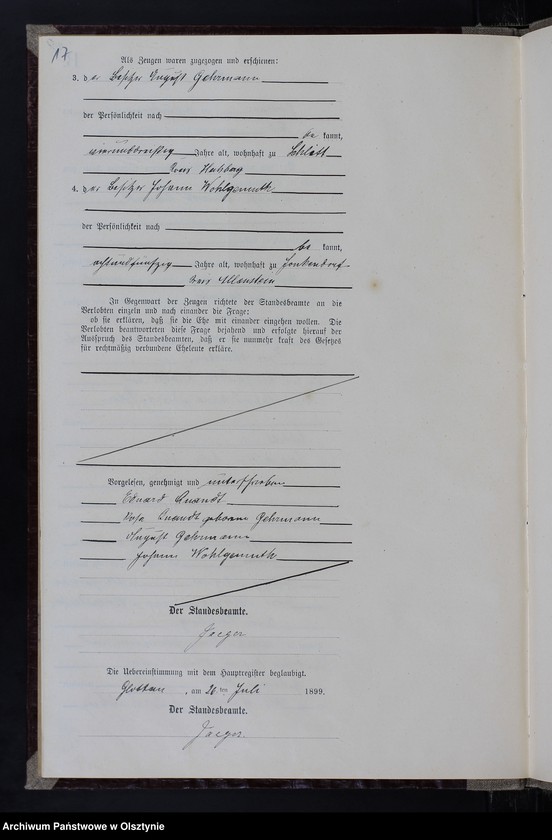 17
Als Zeugen waren zugezogen und erschienen:
3. der Besitzer August Gehrmann
der Persönlichkeit nach
be kannt,
vierunddreißig Jahre alt, wohnhaft zu Schlitt
Kreis Heilsberg
4. der Besitzer Johann Wohlgemuth
der Persönlichkeit nach
be kannt,
achtundfünfzig Jahre alt, wohnhaft zu Jonkendorf
Kreis Allenstein
In Gegenwart der Zeugen richtete der Standesbeamte an die
Verlobten einzeln und nach einander die Frage:
ob sie erklären, daß sie die Ehe mit einander eingehen wollen. Die
Verlobten beantworteten diese Frage bejahend und erfolgte hierauf der
Ausspruch des Standesbeamten, daß er sie nunmehr kraft des Gesetzes
für rechtmäßig verbundene Eheleute erkläre.
Vorgelesen, genehmigt und unterschrieben
Eduard Quandt
Rosa Quandt geborene Gehrmann
August Gehrmann
Johann Wohlgemuth
Der Standesbeamte.
Jaeger
Die Uebereinstimmung mit dem Hauptregister beglaubigt.
Glottau, am ten Juli 1899.
Der Standesbeamte.
Jaeger
Archiwum Państwowe w Olsztynie